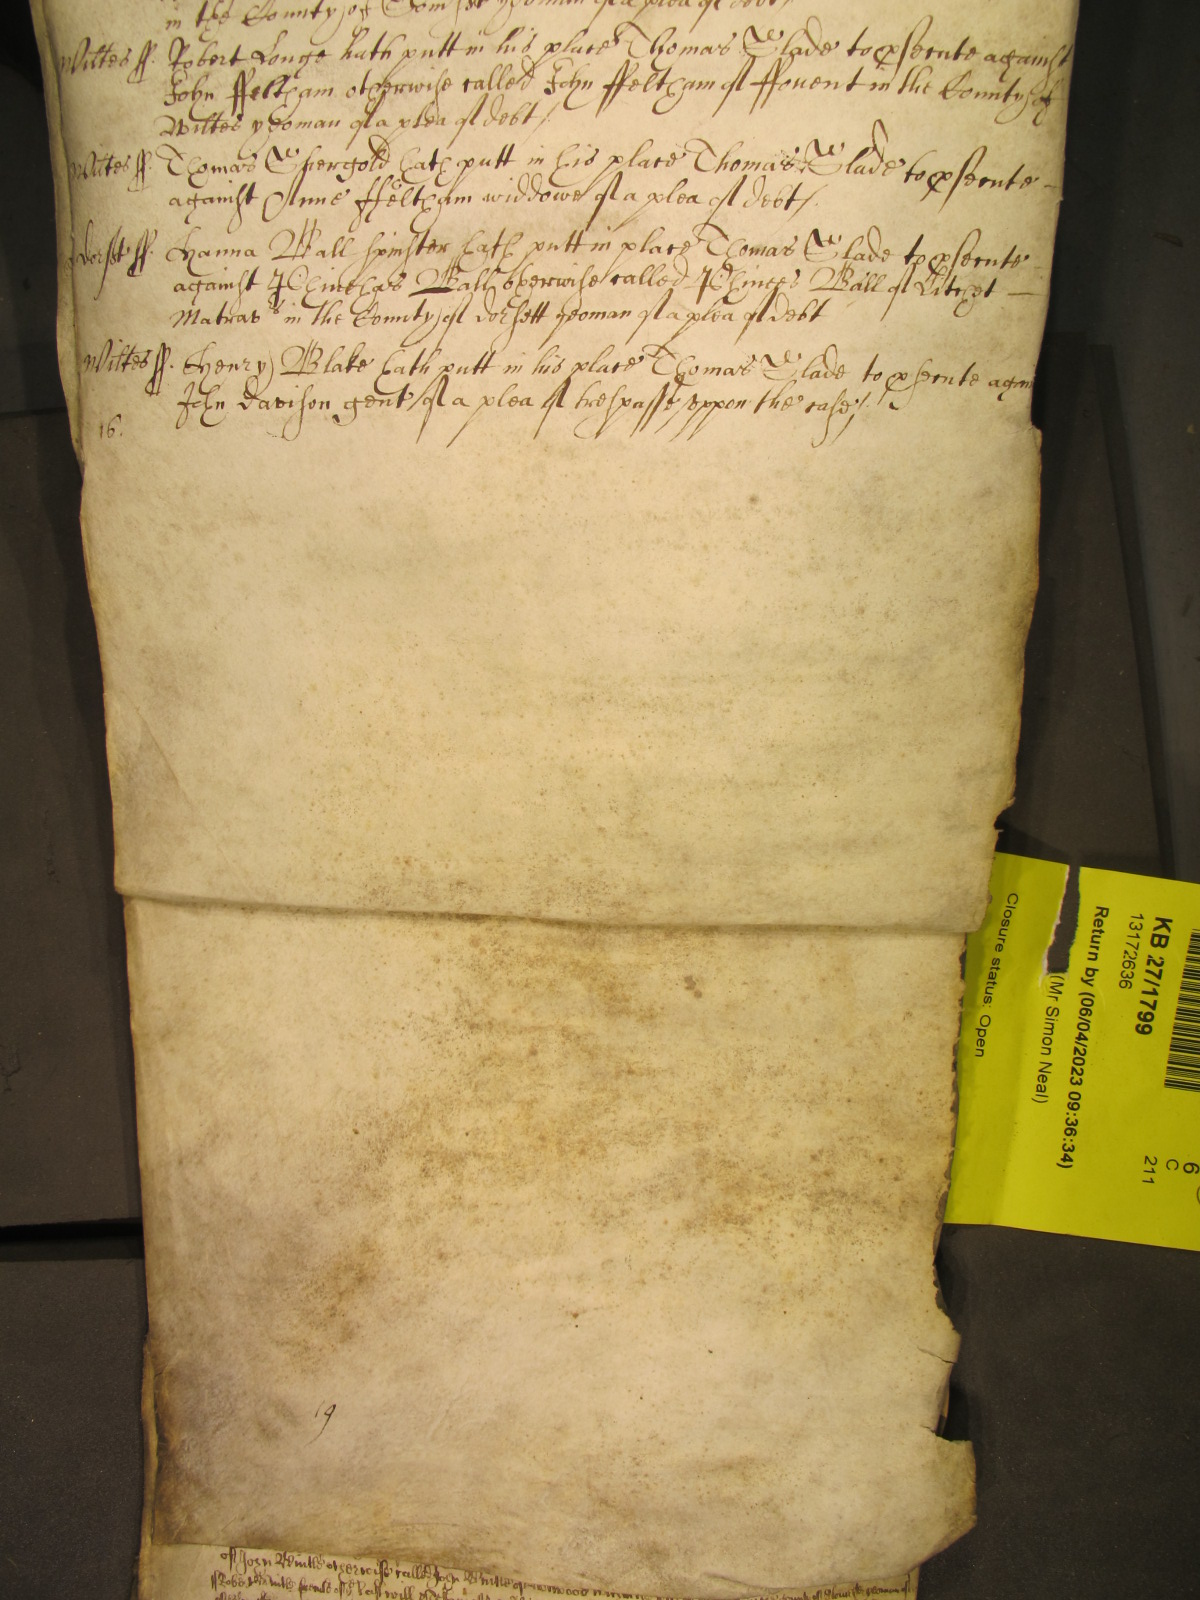 in the County of Som'set yeoman of a plea of debt/
Wiltes ss. Robert Longe hath putt in his place Thomas Slade to psecute against
John Ffeltham otherwise called John Ffeltham of Ffovent in the County of
Wiltes yeoman of a plea of debt/.
Wiltes ss. Thomas Shergold hath putt in his place Thomas Slade to psecute
against Anne Ffeltham widdowe of a plea of debt/.
Dorset ss. Hanna Ball spinster hath putt in place Thomas Slade to psecute
against Phinehas Ball otherwise called Phinees Ball of Litchet
Matravs in the County of Dorsett yeoman of a plea of debt
Wiltes ss. Henry Blake hath putt in his place Thomas Slade to psecute again
John Davison gent/ of a plea of trespasse uppon the case/.
16.
KB 27/1799
13172636
Return by (06/04/2023 09:36:34)
(Mr Simon Neal)
Closure status: Open
6
C
211
19
of John otherwise called John